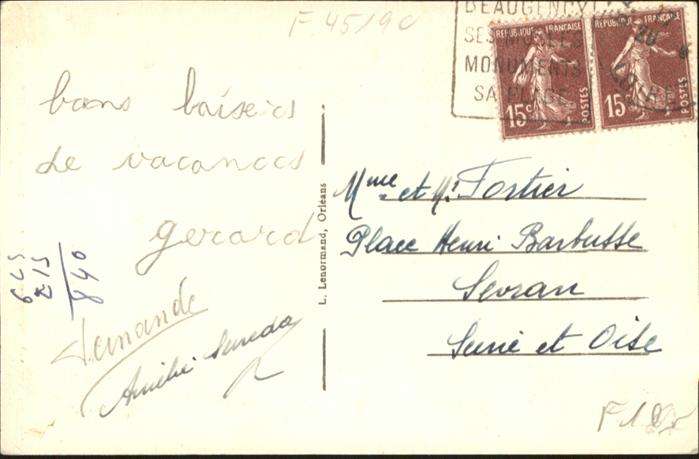 F 45190
BEAUGENCY
SES
MONUMENTS
SA PLAGE
REPUBLIQUE FRANÇAISE
15c
POSTES
REPUBLIQUE FRANÇAISE
15c
POSTES
bons baisers
de vacances
gerard
625
215
840
Amélie
L. Lenormand, Orléans
Mme et Mr Fortier
Place Henri Barbusse
Sevran
Seine et Oise